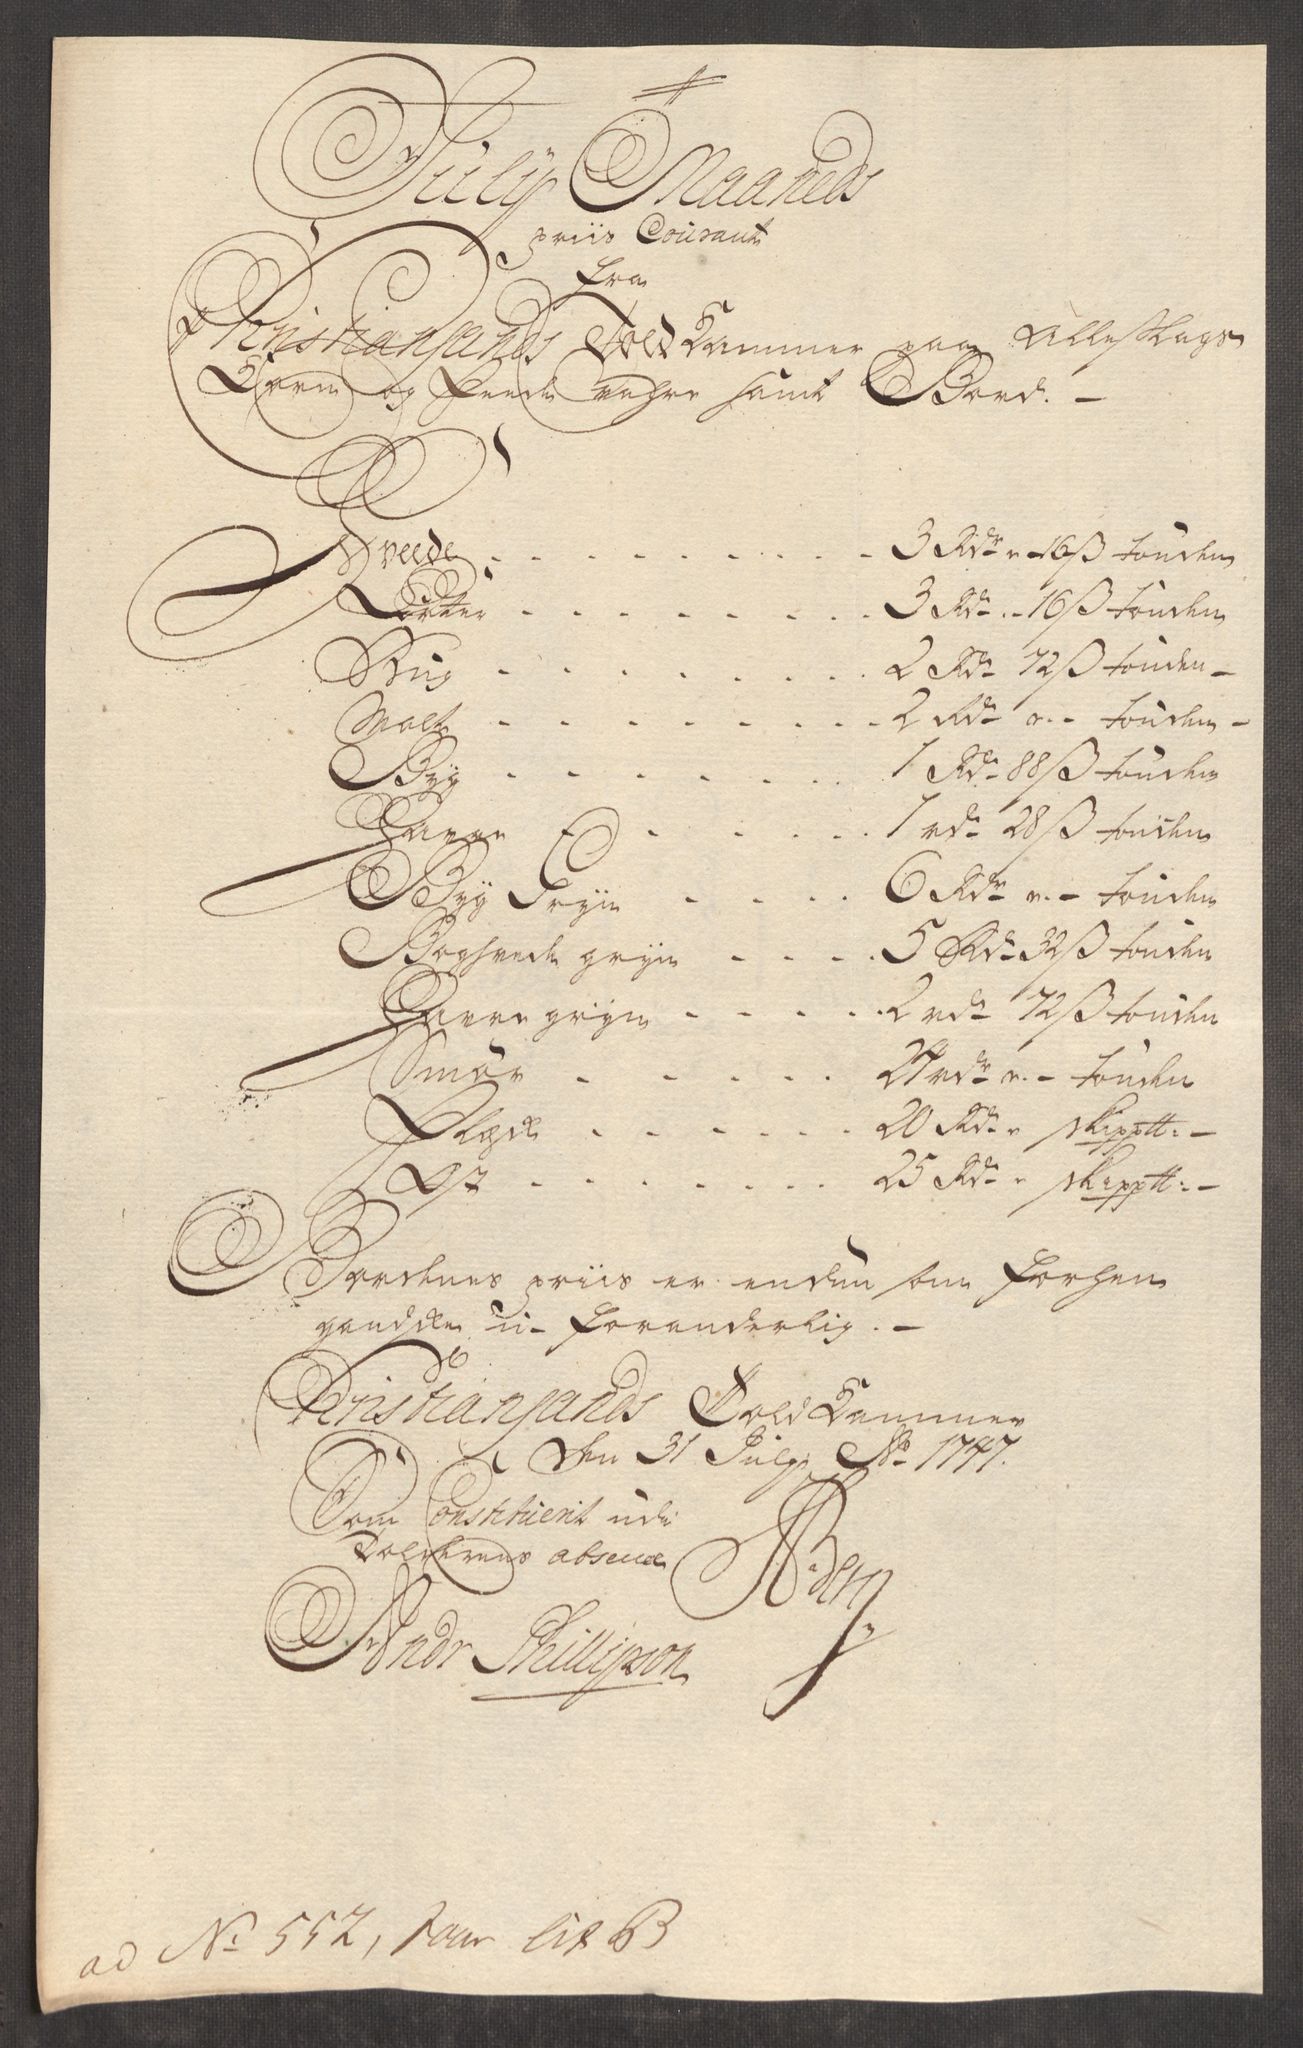 Julÿ Maaneds
priis Courant
fra
Christiansands Told Kammer paa Alle Slags
Korn og Feede vahre samt Bord. -
Hveede - - - - - - - - - 3 Rdr - 16 ß tønden
Ærter - - - - - - - - 3 Rdr - 16 ß tønden
Rug - - - - - - - - 2 Rdr 72 ß tønden -
Malt - - - - - - - - 2 Rdr - tønden -
Byg - - - - - - - 1 Rdr 88 ß tønden
Havre - - - - 1 rdr 28 ß tønden
Byg Gryn - - - - 6 Rdr - tønden
Boghvede gryn - - - - 5 Rdr 32 ß tønden
Havre gryn - - - - - 2 rdr 72 ß tønden
Smør - - - - 24 rdr - tønden
Flesk - - - - - - 20 Rdr skippt: -
Ost - - - - - - - 25 Rdr skippt: -
Bordenes priis er endnu som forhen
gandske u-foranderlig. -
Christiansands Told Kammer
den 31 Julÿ Ao 1747.
Som Constituerit udi
Tolderens absence
Andr Phillipson
ad No 552, Lit B